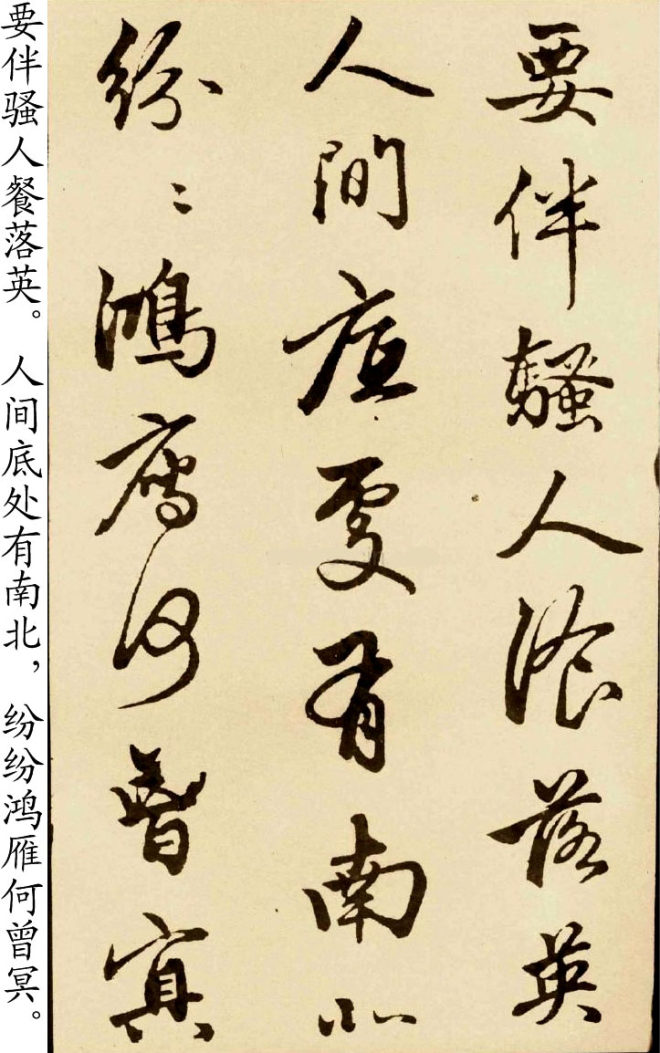 要伴騷人湌落英
人間底處有南北
紛〻鴻鴈何曾冥
要伴骚人餐落英。 人间底处有南北，纷纷鸿雁何曾冥。